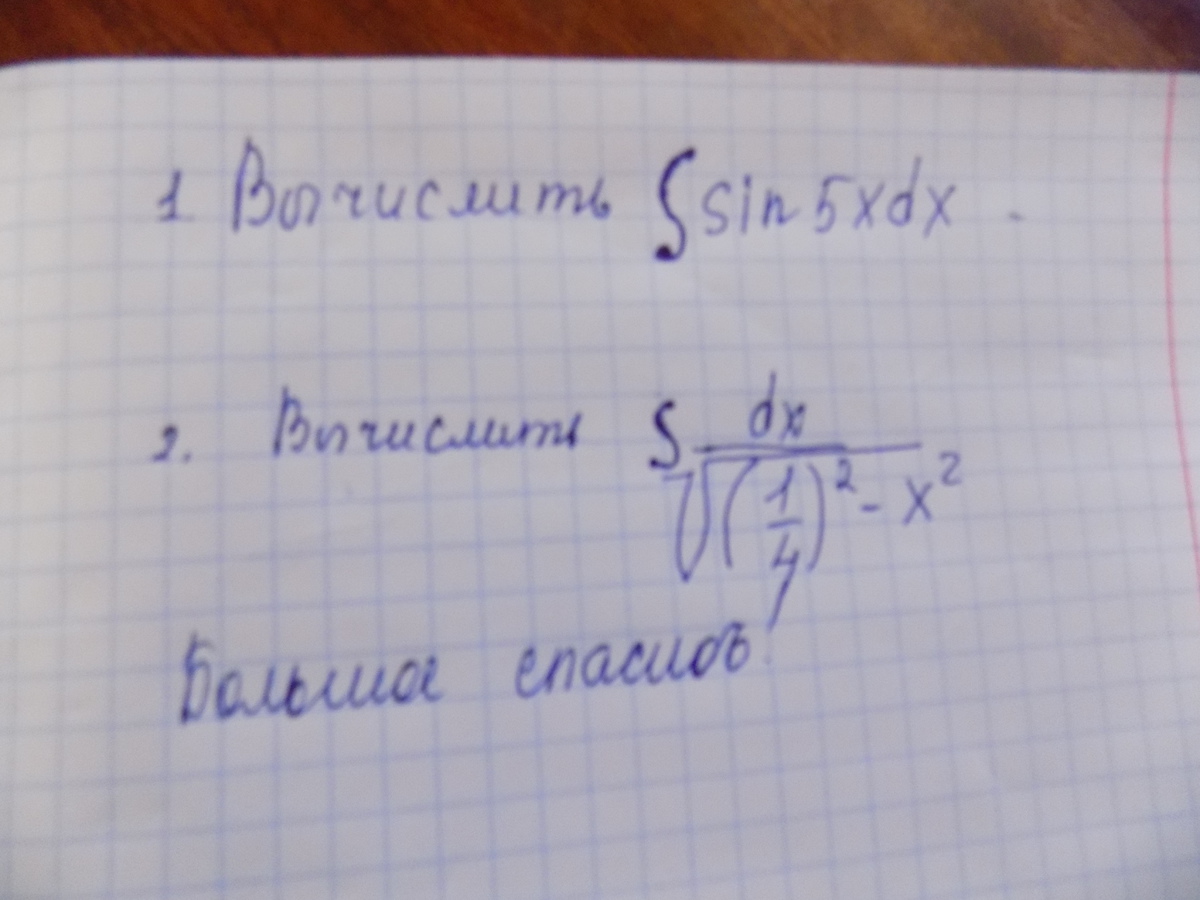 1 Вычислить ∫ sin 5x dx.
2. Вычислить ∫ dx / √((1/4)² - x²)
Большое спасибо!